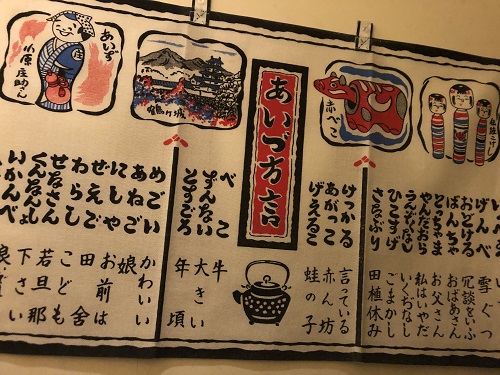 げんべい
雪ぐつ
おどける
冗談をいふ
ばんちゃ
おばあさん
とっちゃま
お父さん
私はいやだ
いくぢなし
ごまかし
さなぶり
田植休み
赤べこ
けっかる
言っている
あがっこ
赤ん坊
げえるこ
蛙の子
あいづ方言
鶴ヶ城
べこ
牛
ずんない
大きい
とすごろ
年頃
めごい
かわいい
あねご
娘
にしゃ
お前は
ぜえご
田舎
わらし
こども
せなさん
若旦那
くんなんしょ
下さい
いかんべ
あいづ
小原庄助さん